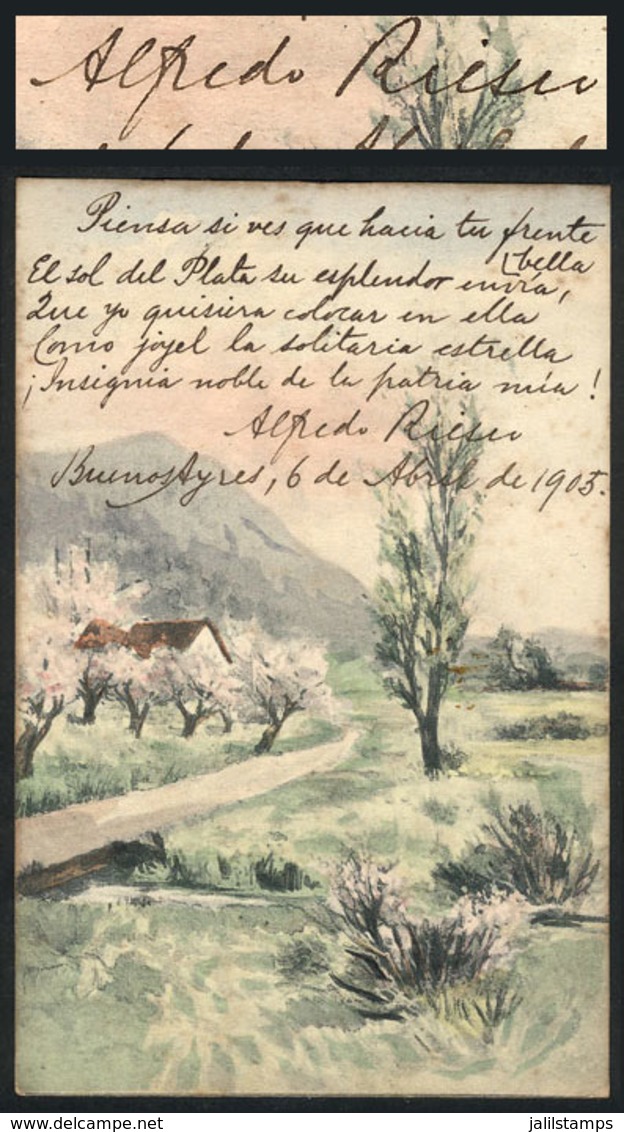 Alfredo Riesco
Piensa si ves que hacia tu frente
bella
El sol del Plata su esplendor envía,
Que yo quisiera colocar en ella
Como joyel la solitaria estrella
¡Insignia noble de la patria mía!
Alfredo Riesco
Buenos Ayres, 6 de Abril de 1905.
www.delcampe.net
jalilstamps